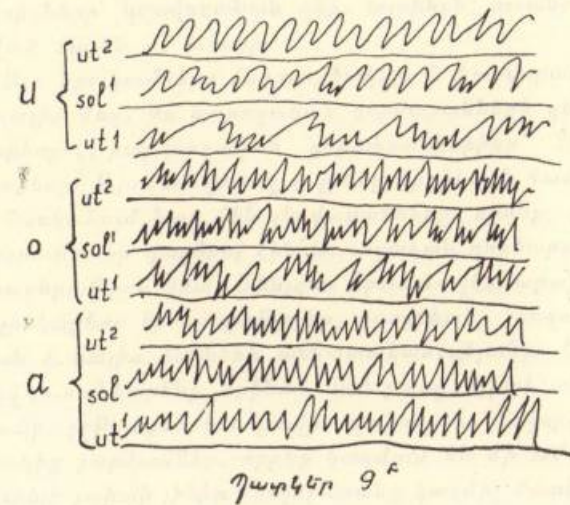 u
ut²
sol¹
ut¹
o
ut²
sol¹
ut¹
a
ut²
sol
ut¹
Պատկեր 9